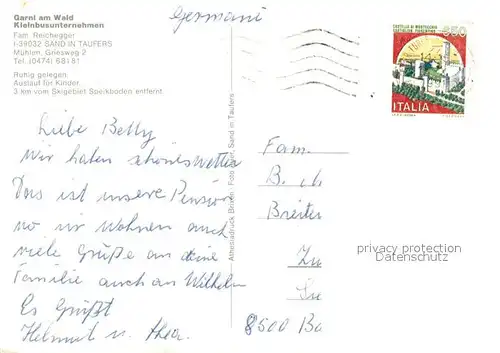 Garni am Wald
Kleinbusunternehmen
Fam. Reichegger
I-39032 SAND IN TAUFERS
Mühlen, Griesweg 2
Tel. (0474) 68181
Ruhig gelegen.
Auslauf für Kinder.
3 km vom Skigebiet Speikboden entfernt.
Germani
CASTELLO DI MONTECCHIO
CASTIGLION FIORENTINO
350
ITALIA
Liebe Betty
Wir haben schönes Wetter
Das ist unsere Pension
wo wir Wohnen auch
viele Grüße an deine
Familie auch an Wilhelm
Es Grüßt
Helmut u. Thea.
Athesiadruck Brixen - Foto Sand in Taufers
Fam.
B ch
Breiter
Zu
8500 Ba
privacy protection
Datenschutz